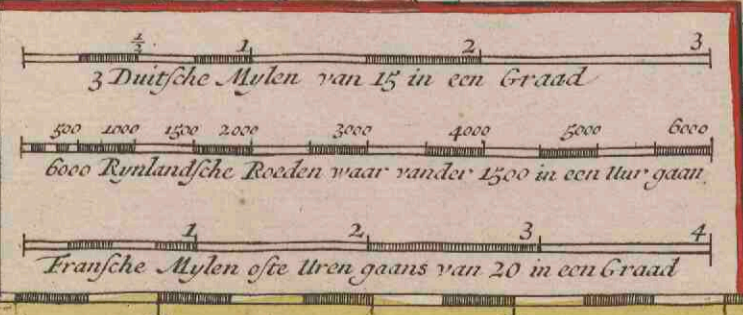 ½ 1 2 3
3 Duitsche Mylen van 15 in een Graad
500 1000 1500 2000 3000 4000 5000 6000
6000 Rynlandsche Roeden waar vander 1500 in een Uur gaan
1 2 3 4
Fransche Mylen ofte Uren gaans van 20 in een Graad